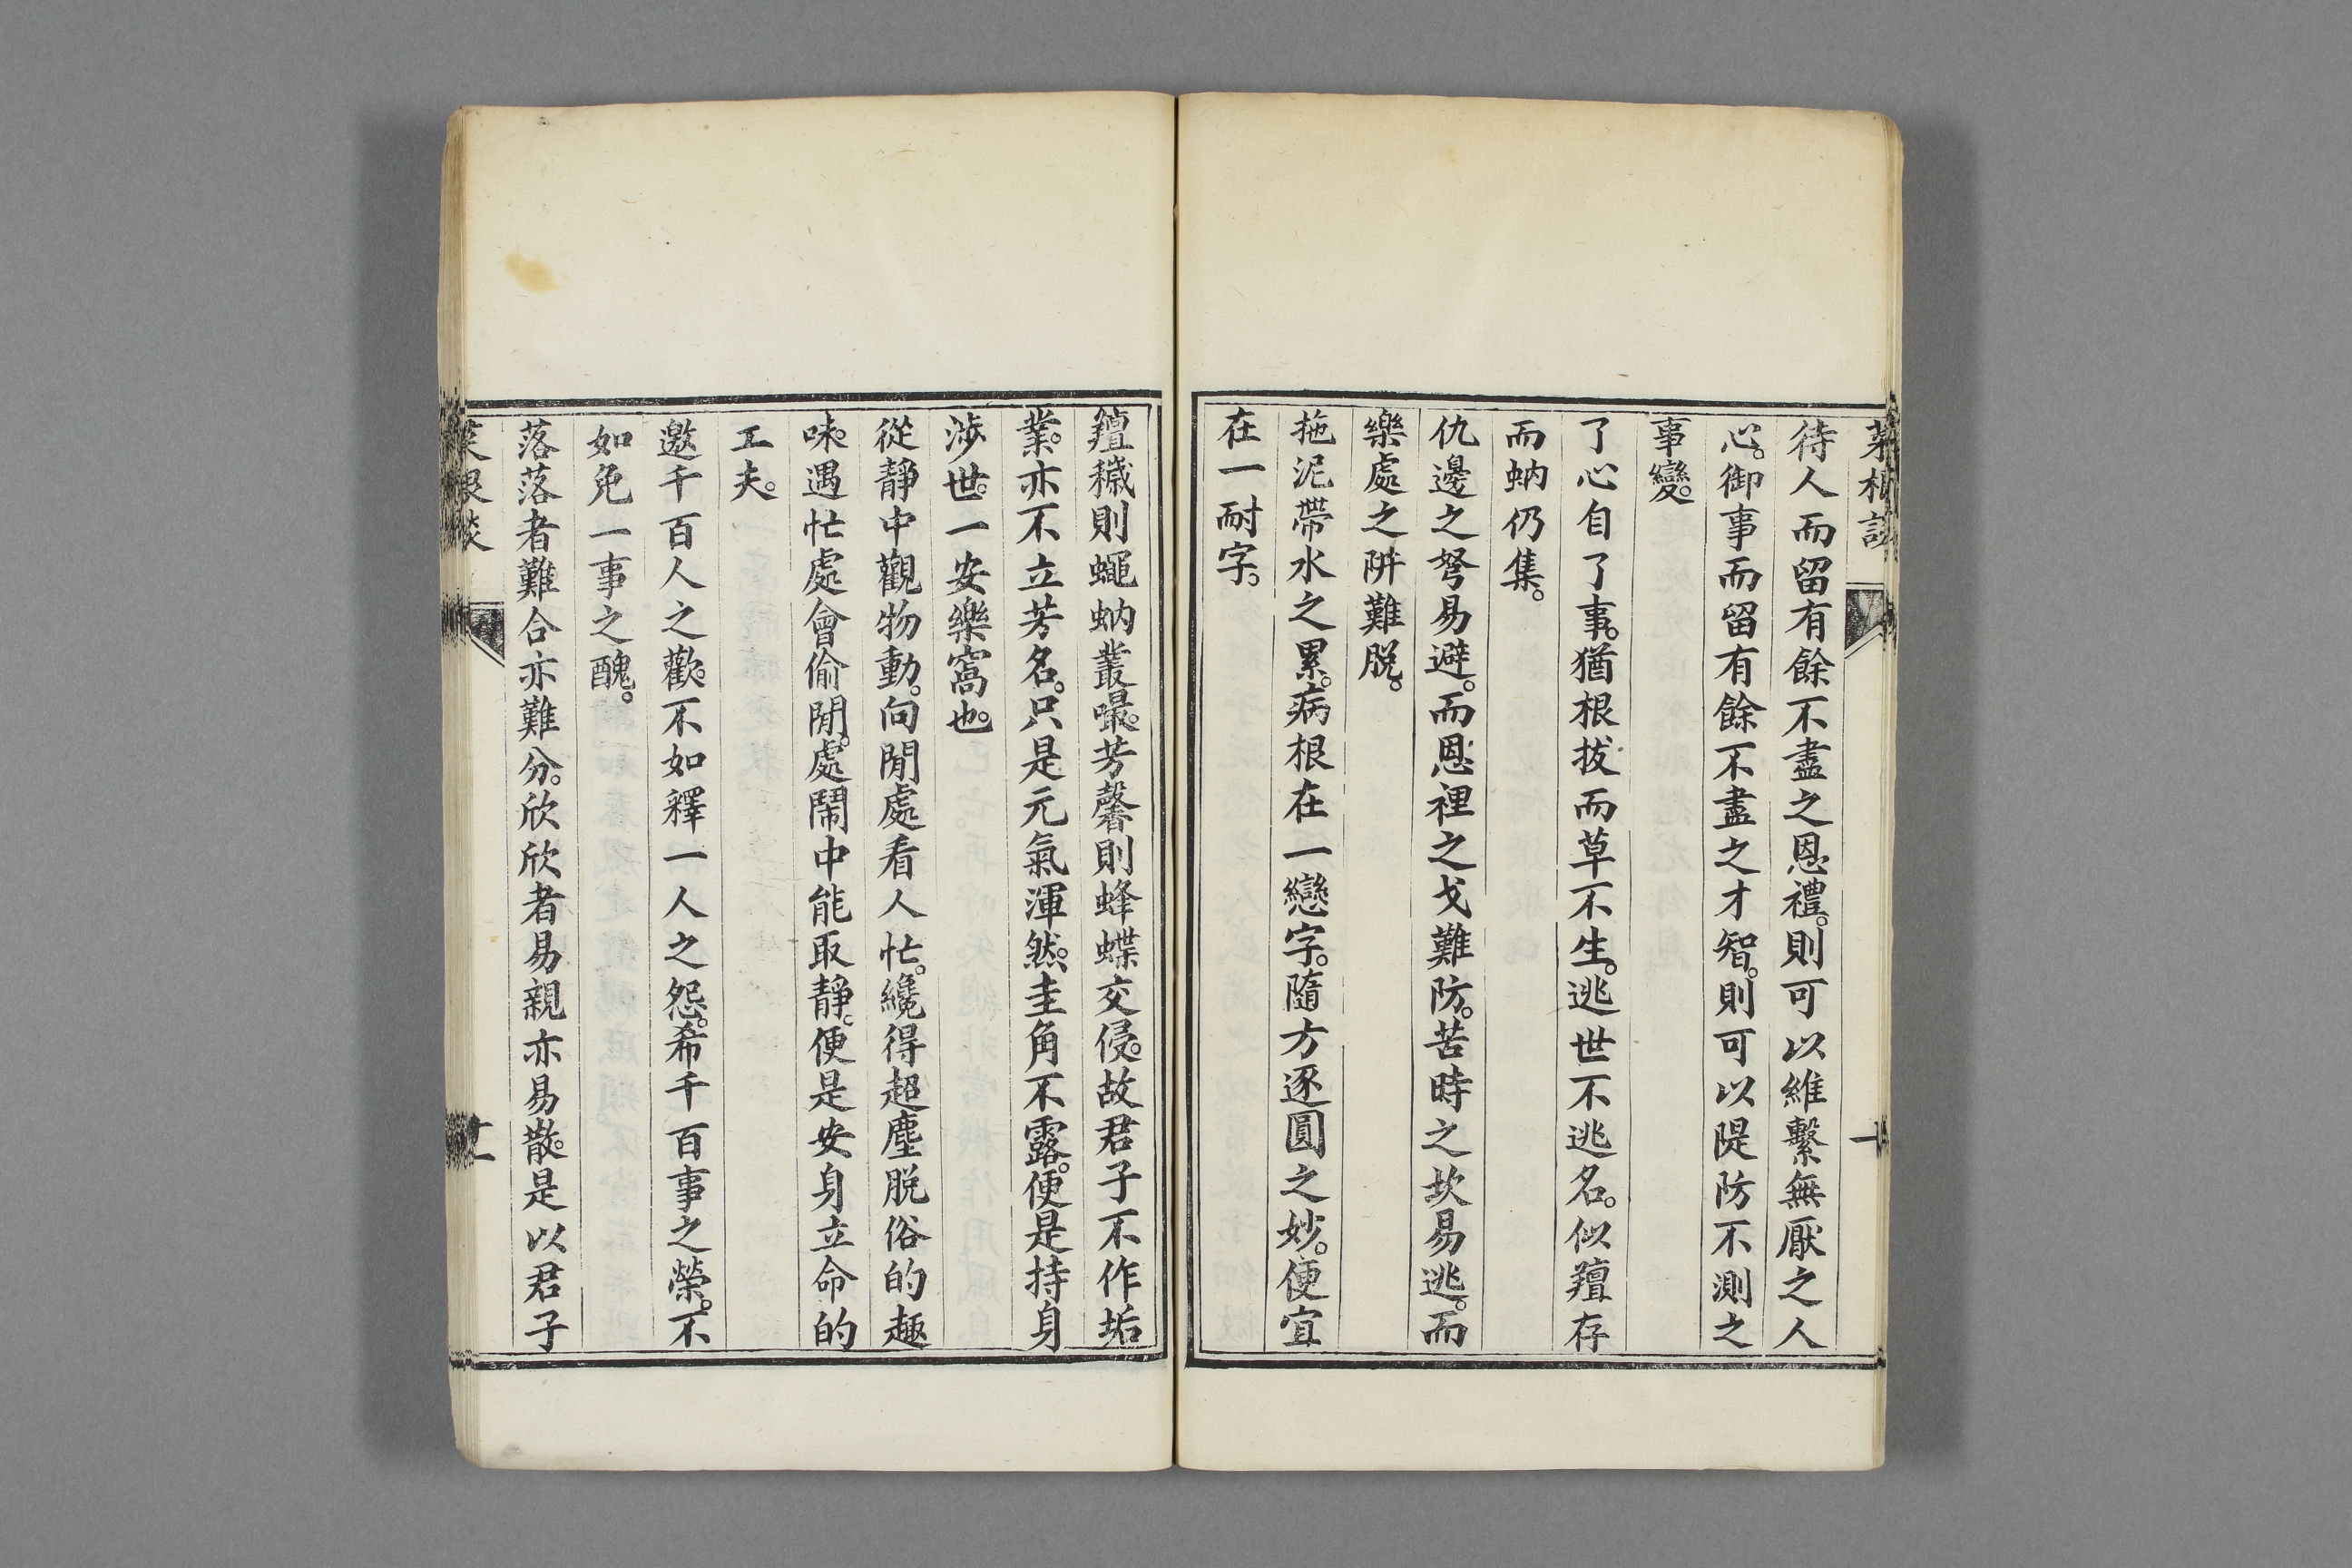 待人而留有餘不盡之恩禮。則可以維繫無厭之人
心。御事而留有餘不盡之才智。則可以隄防不測之
事變。
了心自了事。猶根拔而草不生。逃世不逃名。似羶存
而蚋仍集。
仇邊之弩易避。而恩裡之戈難防。苦時之坎易逃。而
樂處之阱難脱。
拖泥帶水之累。病根在一戀字。隨方逐圓之妙。便宜
在一耐字。
羶穢則蠅蚋叢嘬。芳馨則蜂蝶交侵。故君子不作垢
業。亦不立芳名。只是元氣渾然。圭角不露。便是持身
涉世。一安樂窩也。
從靜中觀物動。向閒處看人忙。纔得超塵脱俗的趣
味。遇忙處會偷閒。處鬧中能取靜。便是安身立命的
工夫。
邀千百人之歡。不如釋一人之怨。希千百事之榮。不
如免一事之醜。
落落者難合亦難分。欣欣者易親亦易散。是以君子
菜根談